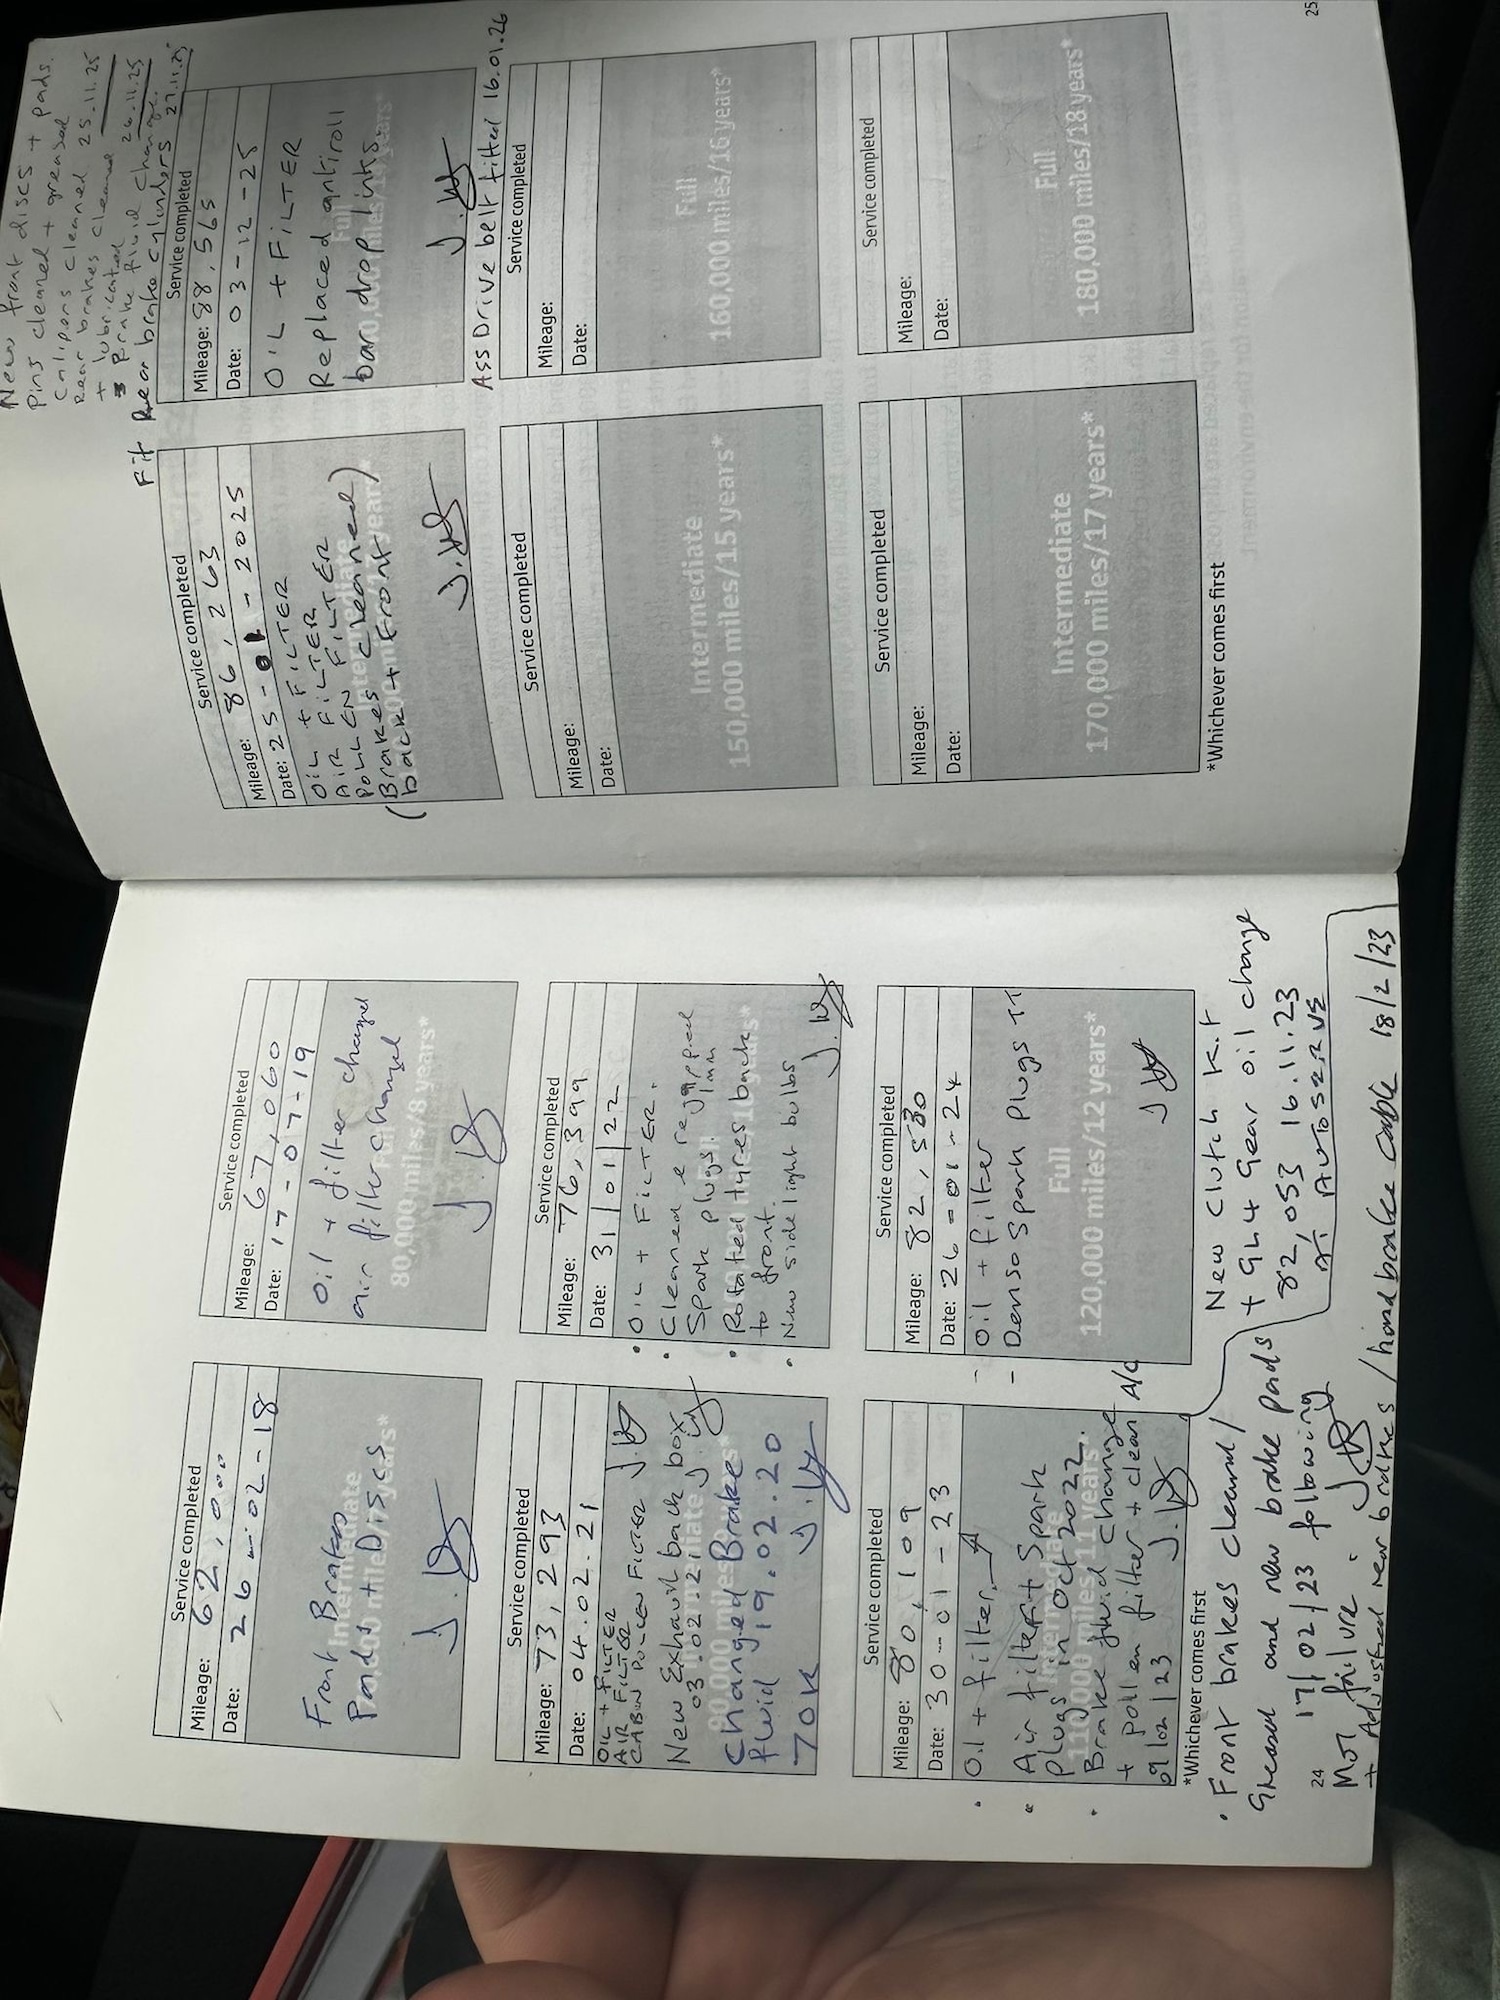 Service completed
Mileage: 62,000
Date: 26-02-18
Front Brakes
Pads + Discs
Intermediate
J.
Service completed
Mileage: 67,060
Date: 17-07-19
Oil + filter changed
air filter changed
80,000 miles/8 years*
J.
Service completed
Mileage: 73,293
Date: 04.02.21
OIL + FILTER
AIR FILTER
CABIN POLLEN FILTER
New Exhaust back box
03.02.21
Changed Brake
fluid 19.02.20
70K
Service completed
Mileage: 76,399
Date: 31/01/22
• OIL + FILTER.
• Cleaned e regapped
Spark plugs. 1mm
• Rotated tyres back
to front.
• New side light bulbs
Service completed
Mileage: 80,109
Date: 30-01-23
• Oil + filter
• Air filter + Spark
plugs in Oct 2022.
• Brake fluid change
+ pollen filter + clean A/C
09/02/23
110,000 miles/11 years*
Service completed
Mileage: 82,530
Date: 26-01-24
- Oil + filter
- Denso Spark Plugs TT
Full
120,000 miles/12 years*
*Whichever comes first
• Front brakes cleaned/
Greased and new brake pads
17/02/23 following
MOT failure.
+ Adjusted rear brakes/handbrake cable 18/2/23
New Clutch Kit
+ 9L4 Gear oil change
82,053 16.11.23
A1 AUTOSERVE
24
New front discs + pads.
Pins cleaned + greased
Calipers cleaned 25.11.25
Rear brakes cleaned
+ lubricated 26.11.25
Brake fluid change.
Fit Rear brake cylinders 27.11.25
Service completed
Mileage: 86,263
Date: 25-01-2025
OIL + FILTER
AIR FILTER
POLLEN FILTER
(Brakes cleaned)
(back + front)
Service completed
Mileage: 88,565
Date: 03-12-25
OIL + FILTER
Replaced antiroll
bar drop links.
Ass Drive belt fitted 16.01.26
Service completed
Mileage:
Date:
Intermediate
150,000 miles/15 years*
Service completed
Mileage:
Date:
Full
160,000 miles/16 years*
Service completed
Mileage:
Date:
Intermediate
170,000 miles/17 years*
Service completed
Mileage:
Date:
Full
180,000 miles/18 years*
*Whichever comes first
25